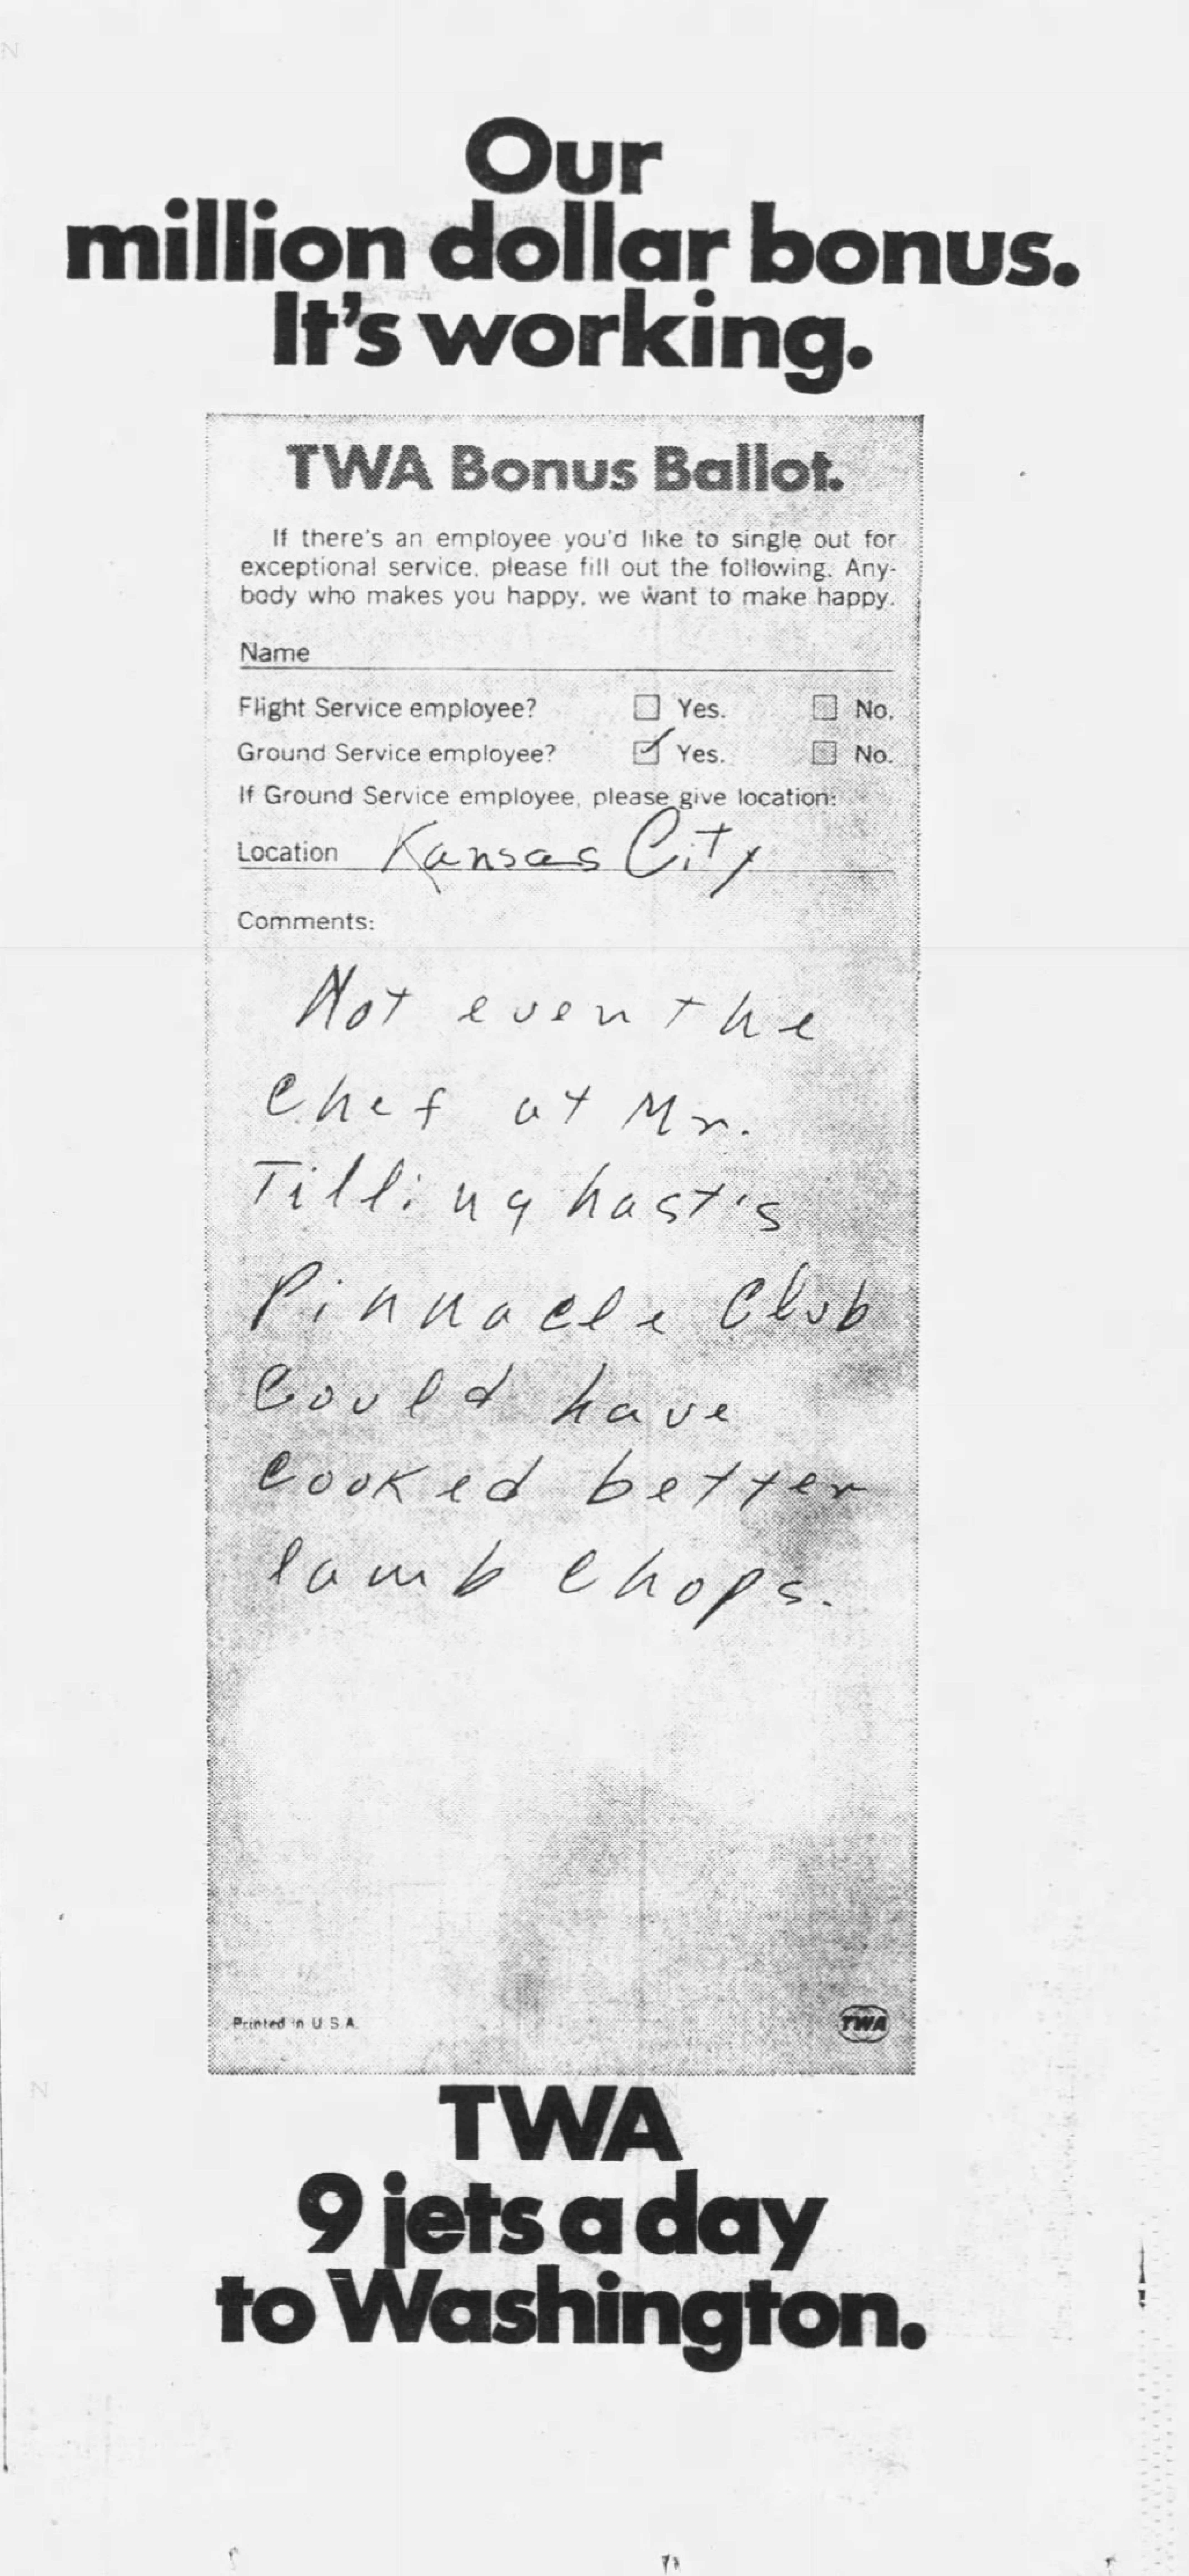 Our
million dollar bonus.
It's working.
TWA Bonus Ballot.
If there's an employee you'd like to single out for
exceptional service, please fill out the following. Any-
body who makes you happy, we want to make happy.
Name
Flight Service employee? Yes. No.
Ground Service employee? Yes. No.
If Ground Service employee, please give location:
Location Kansas City
Comments:
Not even the
Chef at Mr.
Tillinghast's
Pinnacle Club
Could have
Cooked better
lamb Chops.
Printed in U.S.A.
TWA
TWA
9 jets a day
to Washington.